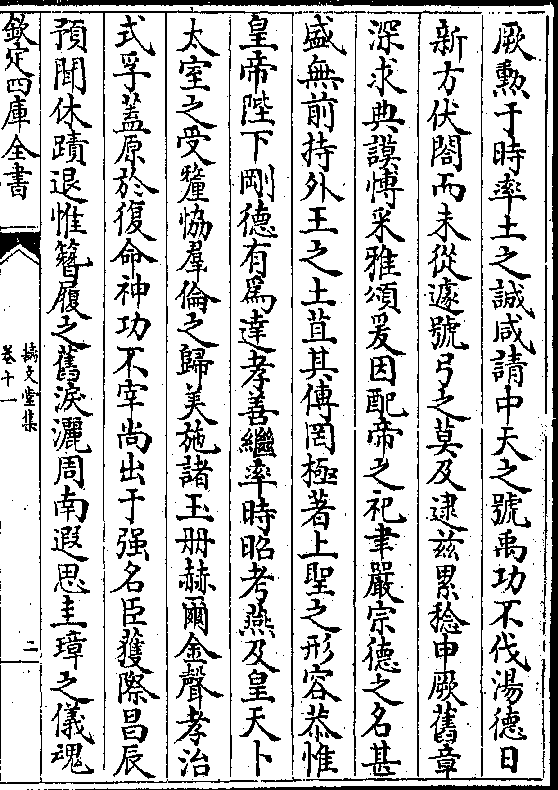 厥勲于時率土之誠咸請中天之號禹功不伐湯德日
新方伏閤而未從遽號弓之莫及逮兹累稔申厥舊章
深求典謨博采雅頌爰因配帝之祀聿嚴宗德之名甚
盛無前持外王之土苴其傳罔極著上聖之形容恭惟
皇帝陛下剛德有爲達孝善繼率時昭考燕及皇天卜
太室之受釐恊羣倫之歸美施諸玉册赫爾金聲孝治
式孚蓋原於復命神功不宰尚出于强名臣獲際昌辰
預聞休蹟退惟簪履之舊淚灑周南遐思圭璋之儀魂
欽定四庫全書
摛文堂集
卷十一
二